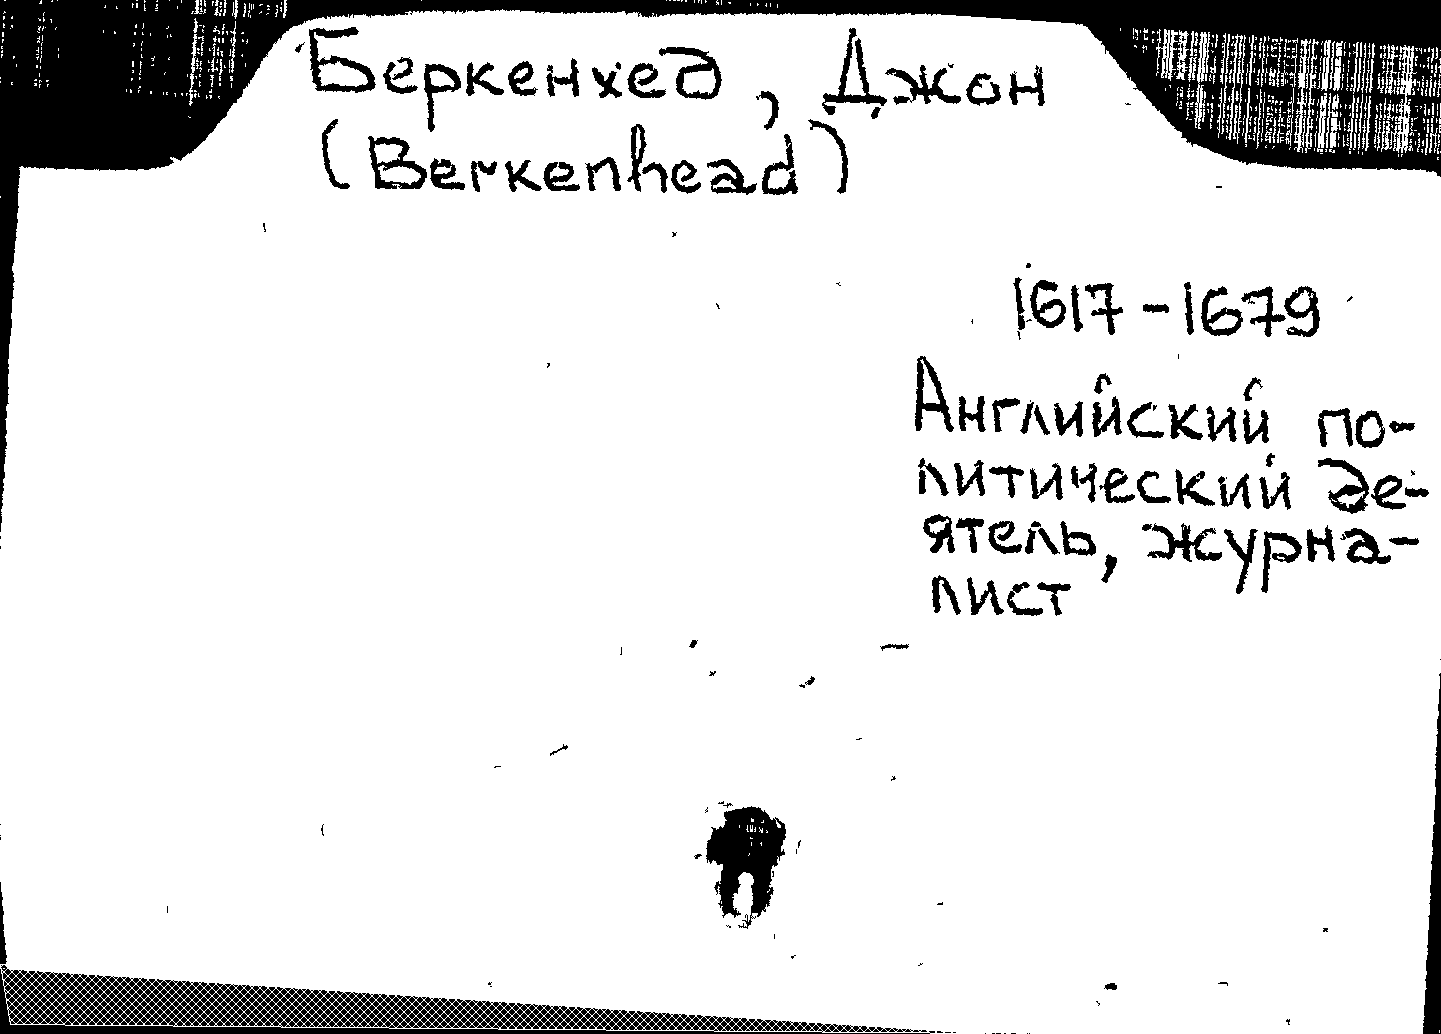 Беркенхед, Джон
(Berkenhead)
1617-1679
Английский по-
литический де-
ятель, журна-
лист